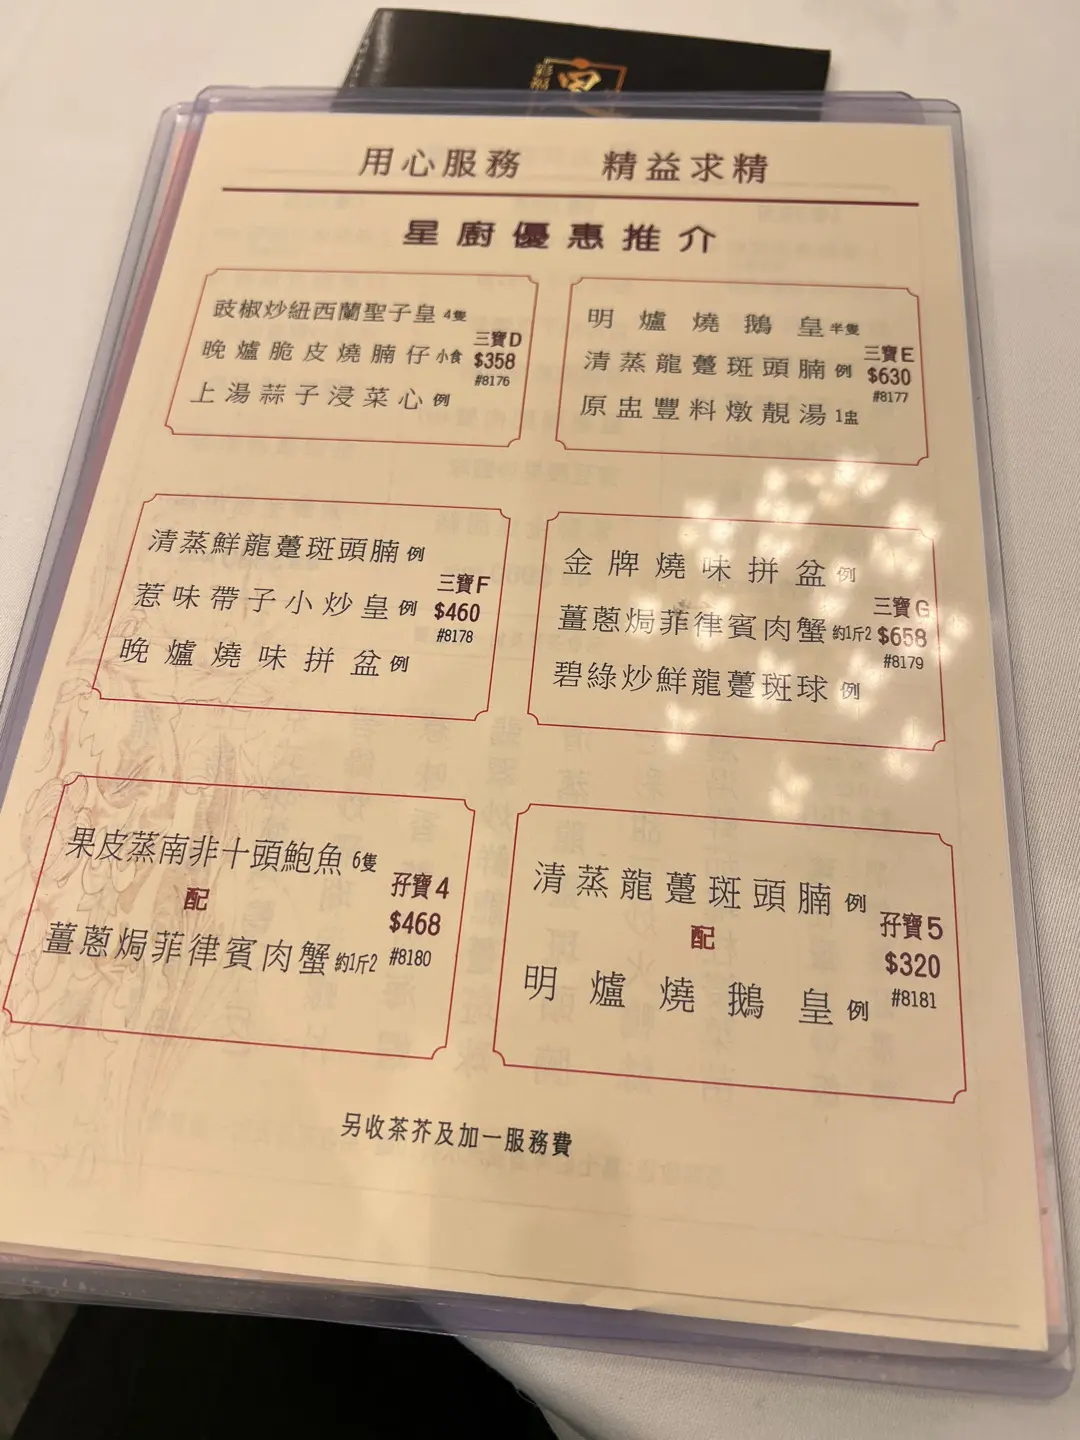 用心服務 精益求精
星廚優惠推介
豉椒炒紐西蘭聖子皇 4隻
晚爐脆皮燒腩仔 小食
上湯蒜子浸菜心 例
三寶D
$358
#8176
明爐燒鵝皇 半隻
清蒸龍躉斑頭腩 例
原盅豐料燉靚湯 1盅
三寶E
$630
#8177
清蒸鮮龍躉斑頭腩 例
惹味帶子小炒皇 例
晚爐燒味拼盆 例
三寶F
$460
#8178
金牌燒味拼盆 例
薑蔥焗菲律賓肉蟹 約1斤2
碧綠炒鮮龍躉斑球 例
三寶G
$658
#8179
果皮蒸南非十頭鮑魚 6隻
配
薑蔥焗菲律賓肉蟹 約1斤2
孖寶4
$468
#8180
清蒸龍躉斑頭腩 例
配
明爐燒鵝皇 例
孖寶5
$320
#8181
另收茶芥及加一服務費